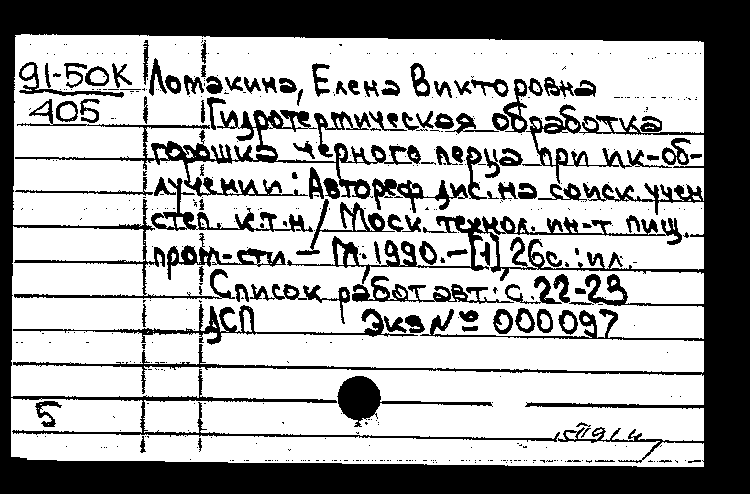 91-50К
405
Ломакина, Елена Викторовна
Гидротермическая обработка
горошка черного перца при ик-об-
лучении: Автореф дис. на соиск. учен
степ. к.т.н. / Моск. технол. ин-т пищ.
пром-сти. — М., 1990. — [1], 26с.: ил.
Список работ авт.: с. 22-23
ДСП Экз № 000097
5